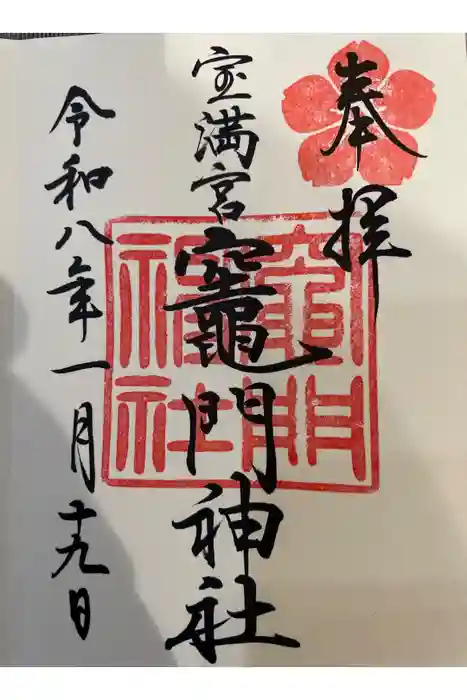 奉拝
宝満宮竈門神社
竈門神社
令和八年一月十九日